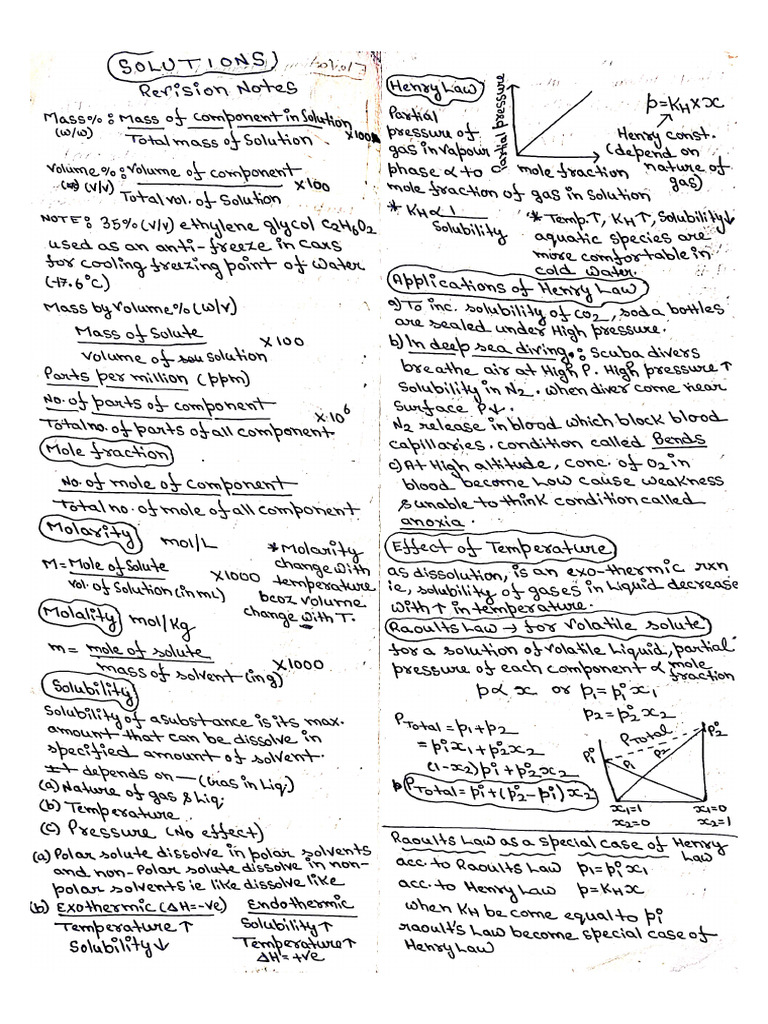 SOLUTIONS
Revision Notes
Mass% : Mass of component in Solution
(w/w) Total mass of Solution x100
Volume % : Volume of component
(v/v) Total vol. of Solution x100
NOTE : 35% (v/v) ethylene glycol C2H6O2
used as an anti-freeze in cars
for cooling freezing point of water
(-17.6°C)
Mass by Volume % (w/v)
Mass of Solute
volume of solution x100
Parts per million (ppm)
No. of parts of component
Total no. of parts of all component x10⁶
Mole fraction
No. of mole of component
Total no. of mole of all component
Molarity mol/L
M = Mole of Solute
vol. of Solution (in mL) x1000
* Molarity
change with
temperature
bcoz volume
change with T.
Molality mol/Kg
m = mole of solute
mass of solvent (in g) x1000
Solubility
Solubility of a substance is its max.
amount that can be dissolve in
specified amount of solvent.
It depends on — (Gas in Liq.)
(a) Nature of gas & Liq.
(b) Temperature
(c) Pressure (No effect)
(a) Polar solute dissolve in polar solvents
and non-Polar solute dissolve in non-
polar solvents ie like dissolve like
(b) Exothermic (ΔH=-ve) Endothermic
Temperature ↑ Solubility ↑
Solubility ↓ Temperature ↑
ΔH = +ve
Henry Law
Partial
pressure of
gas in vapour
phase α to
mole fraction of gas in solution
Partial pressure
mole fraction
p = KH x x
Henry const.
(depend on
nature of
gas)
* KH α 1
Solubility
* Temp.↑, KH↑, Solubility↓
aquatic species are
more comfortable in
cold water.
Applications of Henry Law
a) To inc. solubility of CO2, soda bottles
are sealed under High pressure.
b) In deep sea diving : Scuba divers
breathe air at High P. High pressure ↑
Solubility in N2. when diver come near
surface P↓.
N2 release in blood which block blood
capillaries. condition called Bends
c) At High altitude, conc. of O2 in
blood become Low cause weakness
& unable to think condition called
anoxia.
Effect of Temperature
as dissolution, is an exo-thermic rxn
ie, solubility of gases in Liquid decrease
with ↑ in temperature.
Raoults Law → for Volatile solute
for a solution of volatile Liquid, partial
pressure of each component α mole
fraction
p α x or p1 = p1° x1
p2 = p2° x2
PTotal = p1 + p2
= p1° x1 + p2° x2
(1-x2) p1° + p2° x2
PTotal = p1° + (p2° - p1°) x2
p1°
p2°
PTotal
p1
p2
x1=1 x1=0
x2=0 x2=1
Raoults Law as a special case of Henry
Law
acc. to Raoults Law p1 = p1° x1
acc. to Henry Law p = KH x
when KH become equal to p1°
raoults Law become special case of
Henry Law